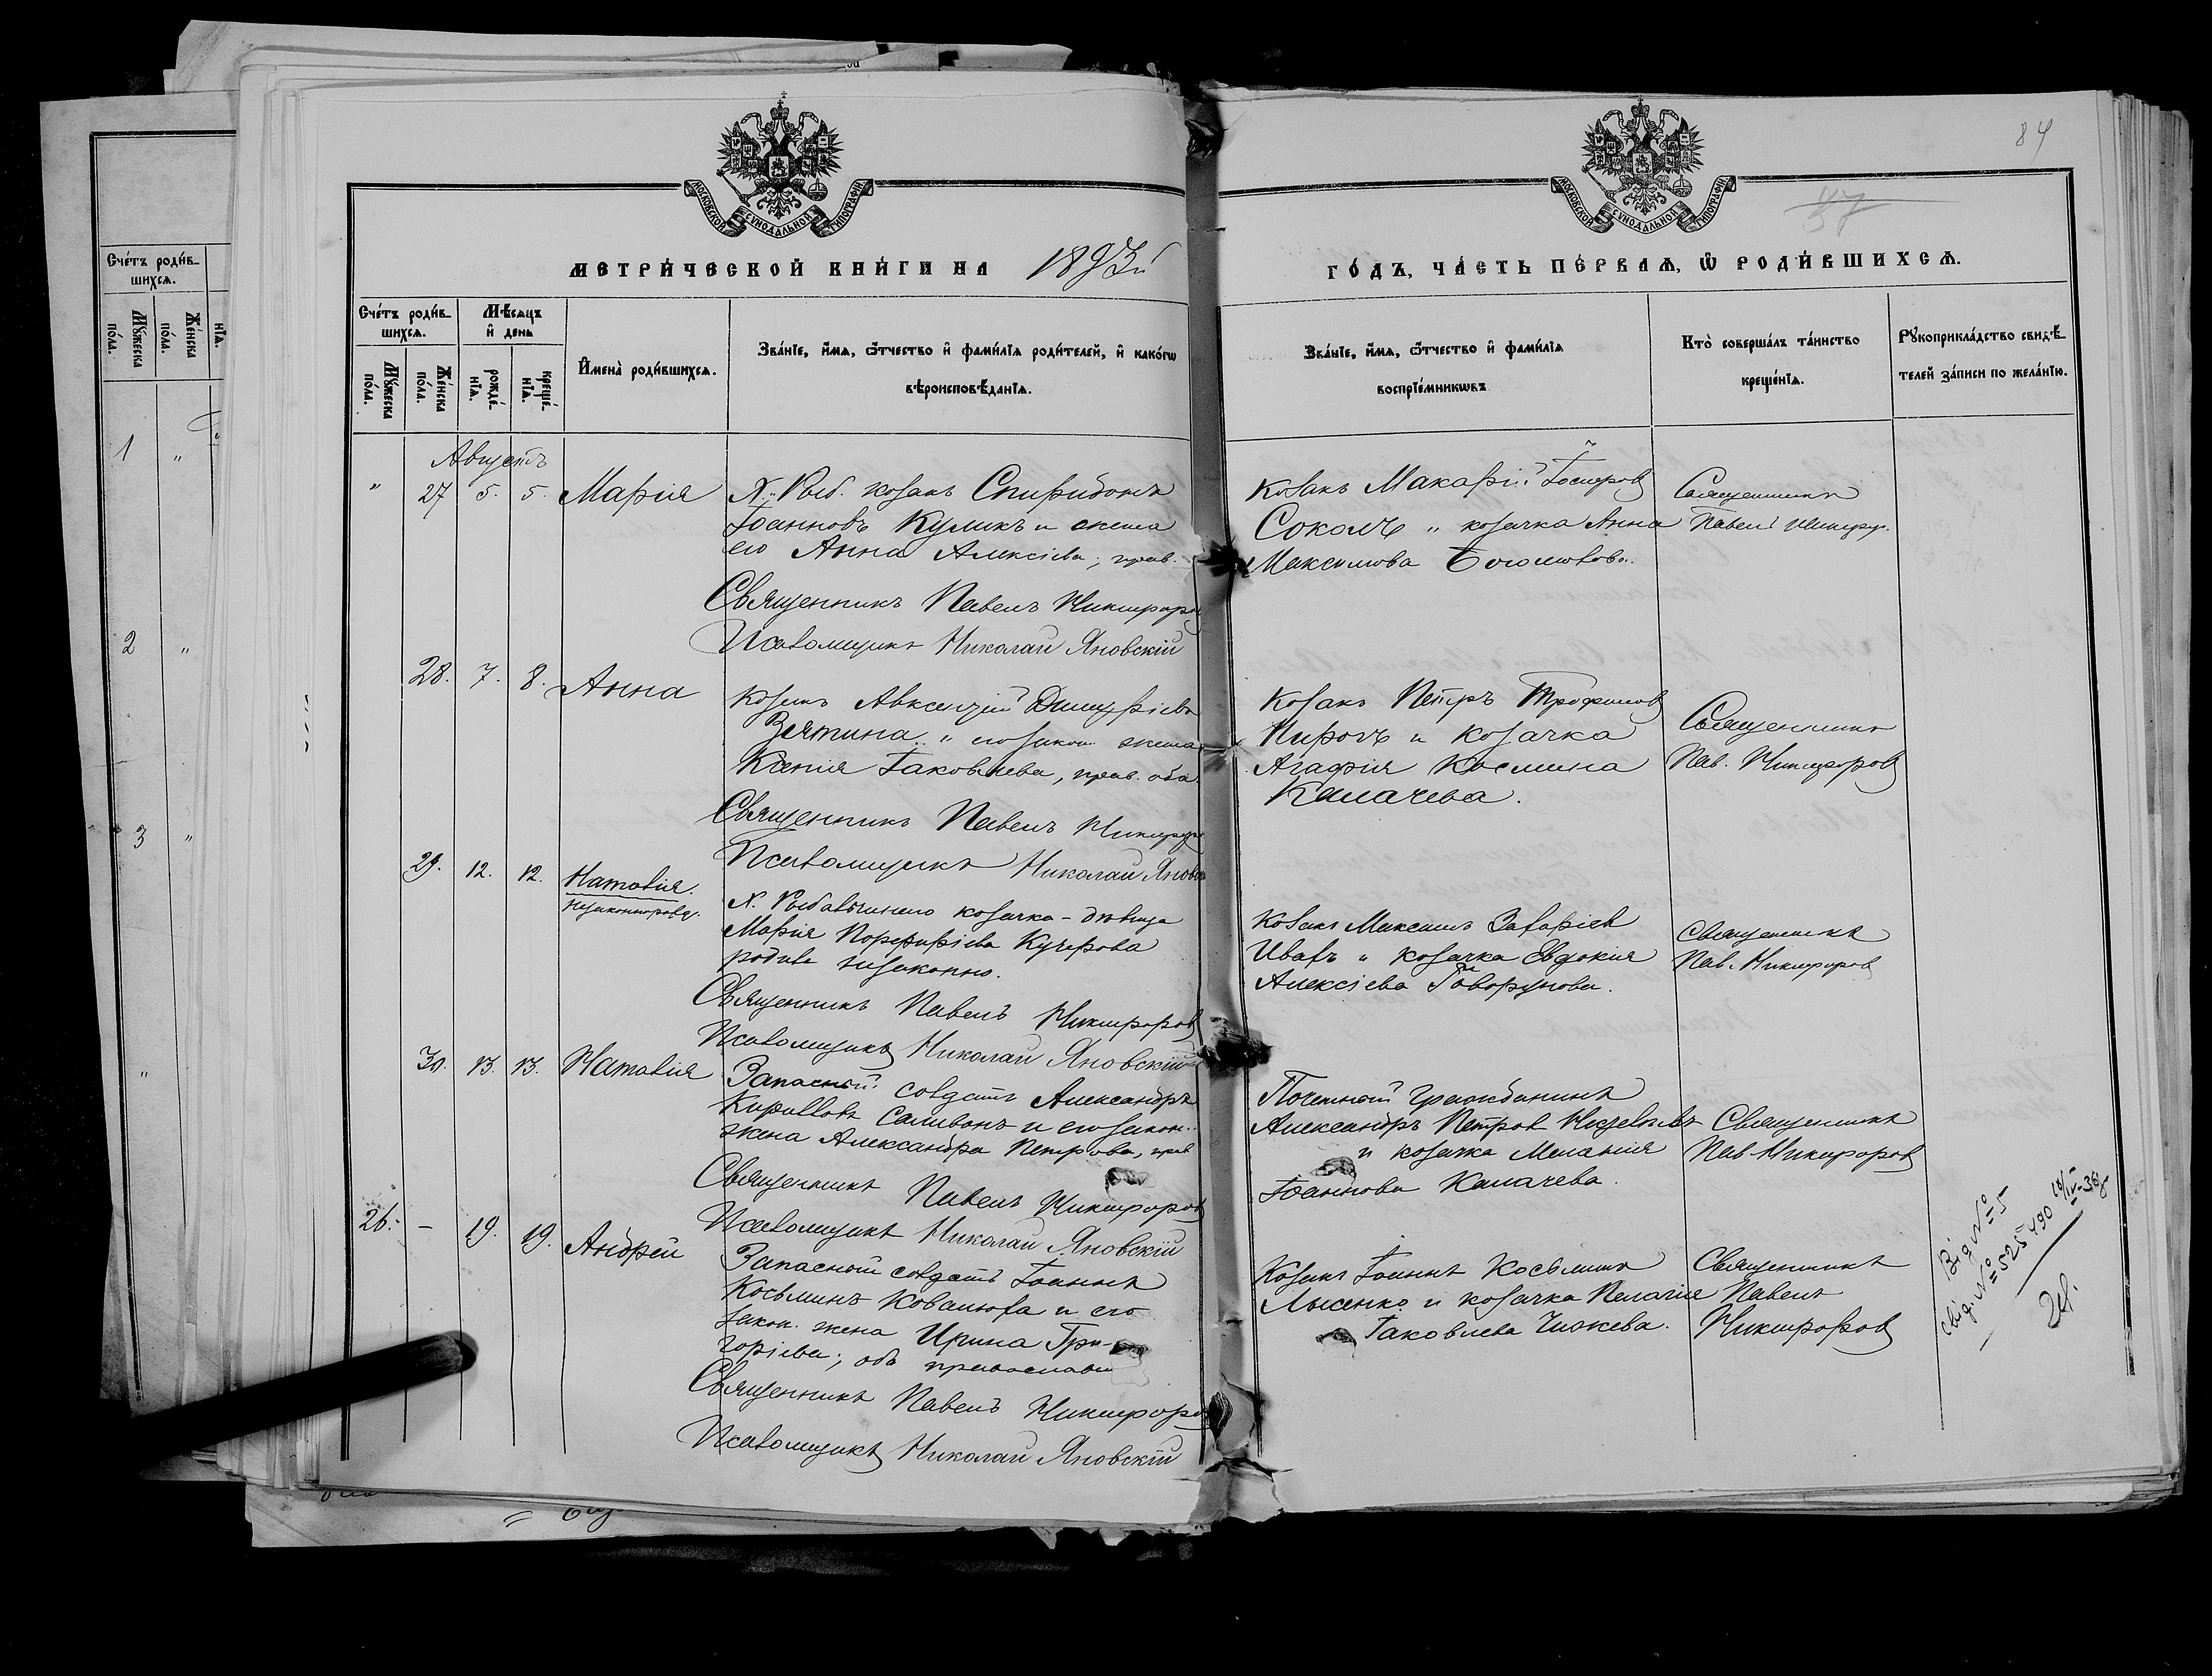 84
57
МОСКОВСКОЙ СѴНОДАЛЬНОЙ ТИПОГРАФІИ
МОСКОВСКОЙ СѴНОДАЛЬНОЙ ТИПОГРАФІИ
МЕТРИ́ЧЕСКОЙ КНИ́ГИ НА 1893й
ГО́ДЪ, ЧА́СТЬ ПЕ́РВАѦ, Ѽ РОДИ́ВШИХСѦ.
Сче́тъ роди́в-
шихсѧ.
Мѣ́сѧцъ
и҆ день
Му́жеска
по́ла.
Же́нска
по́ла.
рожде́-
нїѧ.
креще́-
нїѧ.
И҆мена̀ роди́вшихсѧ.
Зва́нїе, и҆́мѧ, ѻ҆́тчество и҆ фами́лїѧ роди́телей, и҆ како́гѡ
вѣроисповѣ́данїѧ.
Зва́нїе, и҆́мѧ, ѻ҆́тчество и҆ фами́лїѧ
воспрїе́мникѡвъ
Кто̀ соверша́лъ та́инство
креще́нїѧ.
Рꙋкоприкла́дство свидѣ́-
телей за́писи по жела́нїю.
Сче́тъ роди́в-
шихсѧ.
Му́жеска
по́ла.
Же́нска
по́ла.
нїѧ.
1 "
2 "
3 "
"
Августъ
" 27 5. 5. Марія
Х. Рыб. козакъ Спиридонъ
Іоанновъ Куликъ и жена
его Анна Алексіева; прав.
Священникъ Павелъ Никифоров
Псаломщикъ Николай Яновскій
Козакъ Макарій
Соколъ и козачка Анна
Максимова
Священникъ
Павелъ Никифор.
28. 7. 8. Анна
Козакъ Авксентій Димитріевъ
Зятина и его закон. жена
Ксенія Іаковлева, прав. оба
Священникъ Павелъ Никифоров
Псаломщикъ Николай Яновск
Козакъ Петръ Трофимов
Пирогъ и козачка
Агафія Космина
Калачева.
Священникъ
Пав. Никифоров
29. 12. 12. Наталія.
незаконнорожд.
Х. Рыбальчино козачка - дѣвица
Марія Порфиріева Кучерова
родила незаконно.
Священникъ Павелъ Никифоров
Псаломщикъ Николай Яновскій
Козакъ Максимъ Захаріев
Ивахъ и козачка Евдокія
Алексіева Говорунова.
Священникъ
Пав. Никифоров
30. 13. 13. Наталія
Запасной солдатъ Александръ
Кирилловъ Саливонъ и его закон.
жена Александра Петрова, прав
Священникъ Павелъ Никифоров
Псаломщикъ Николай Яновскій
Почетный гражданинъ
Александръ Петров
и козачка Меланія
Іоаннова Калачева.
Священникъ
Пав. Никифоров
26. - 19. 19. Андрей
Запасной солдатъ Іоаннъ
Косьминъ Ковалюха и его
закон. жена Ирина Гри-
горіева; оба православн
Священникъ Павелъ Никифоров
Псаломщикъ Николай Яновскій
Козакъ Іоаннъ Косьмин
Лысенко и козачка Пелагія
Іаковлева Чижева.
Священникъ
Павелъ
Никифоров
Від № 5
свід. № 525490